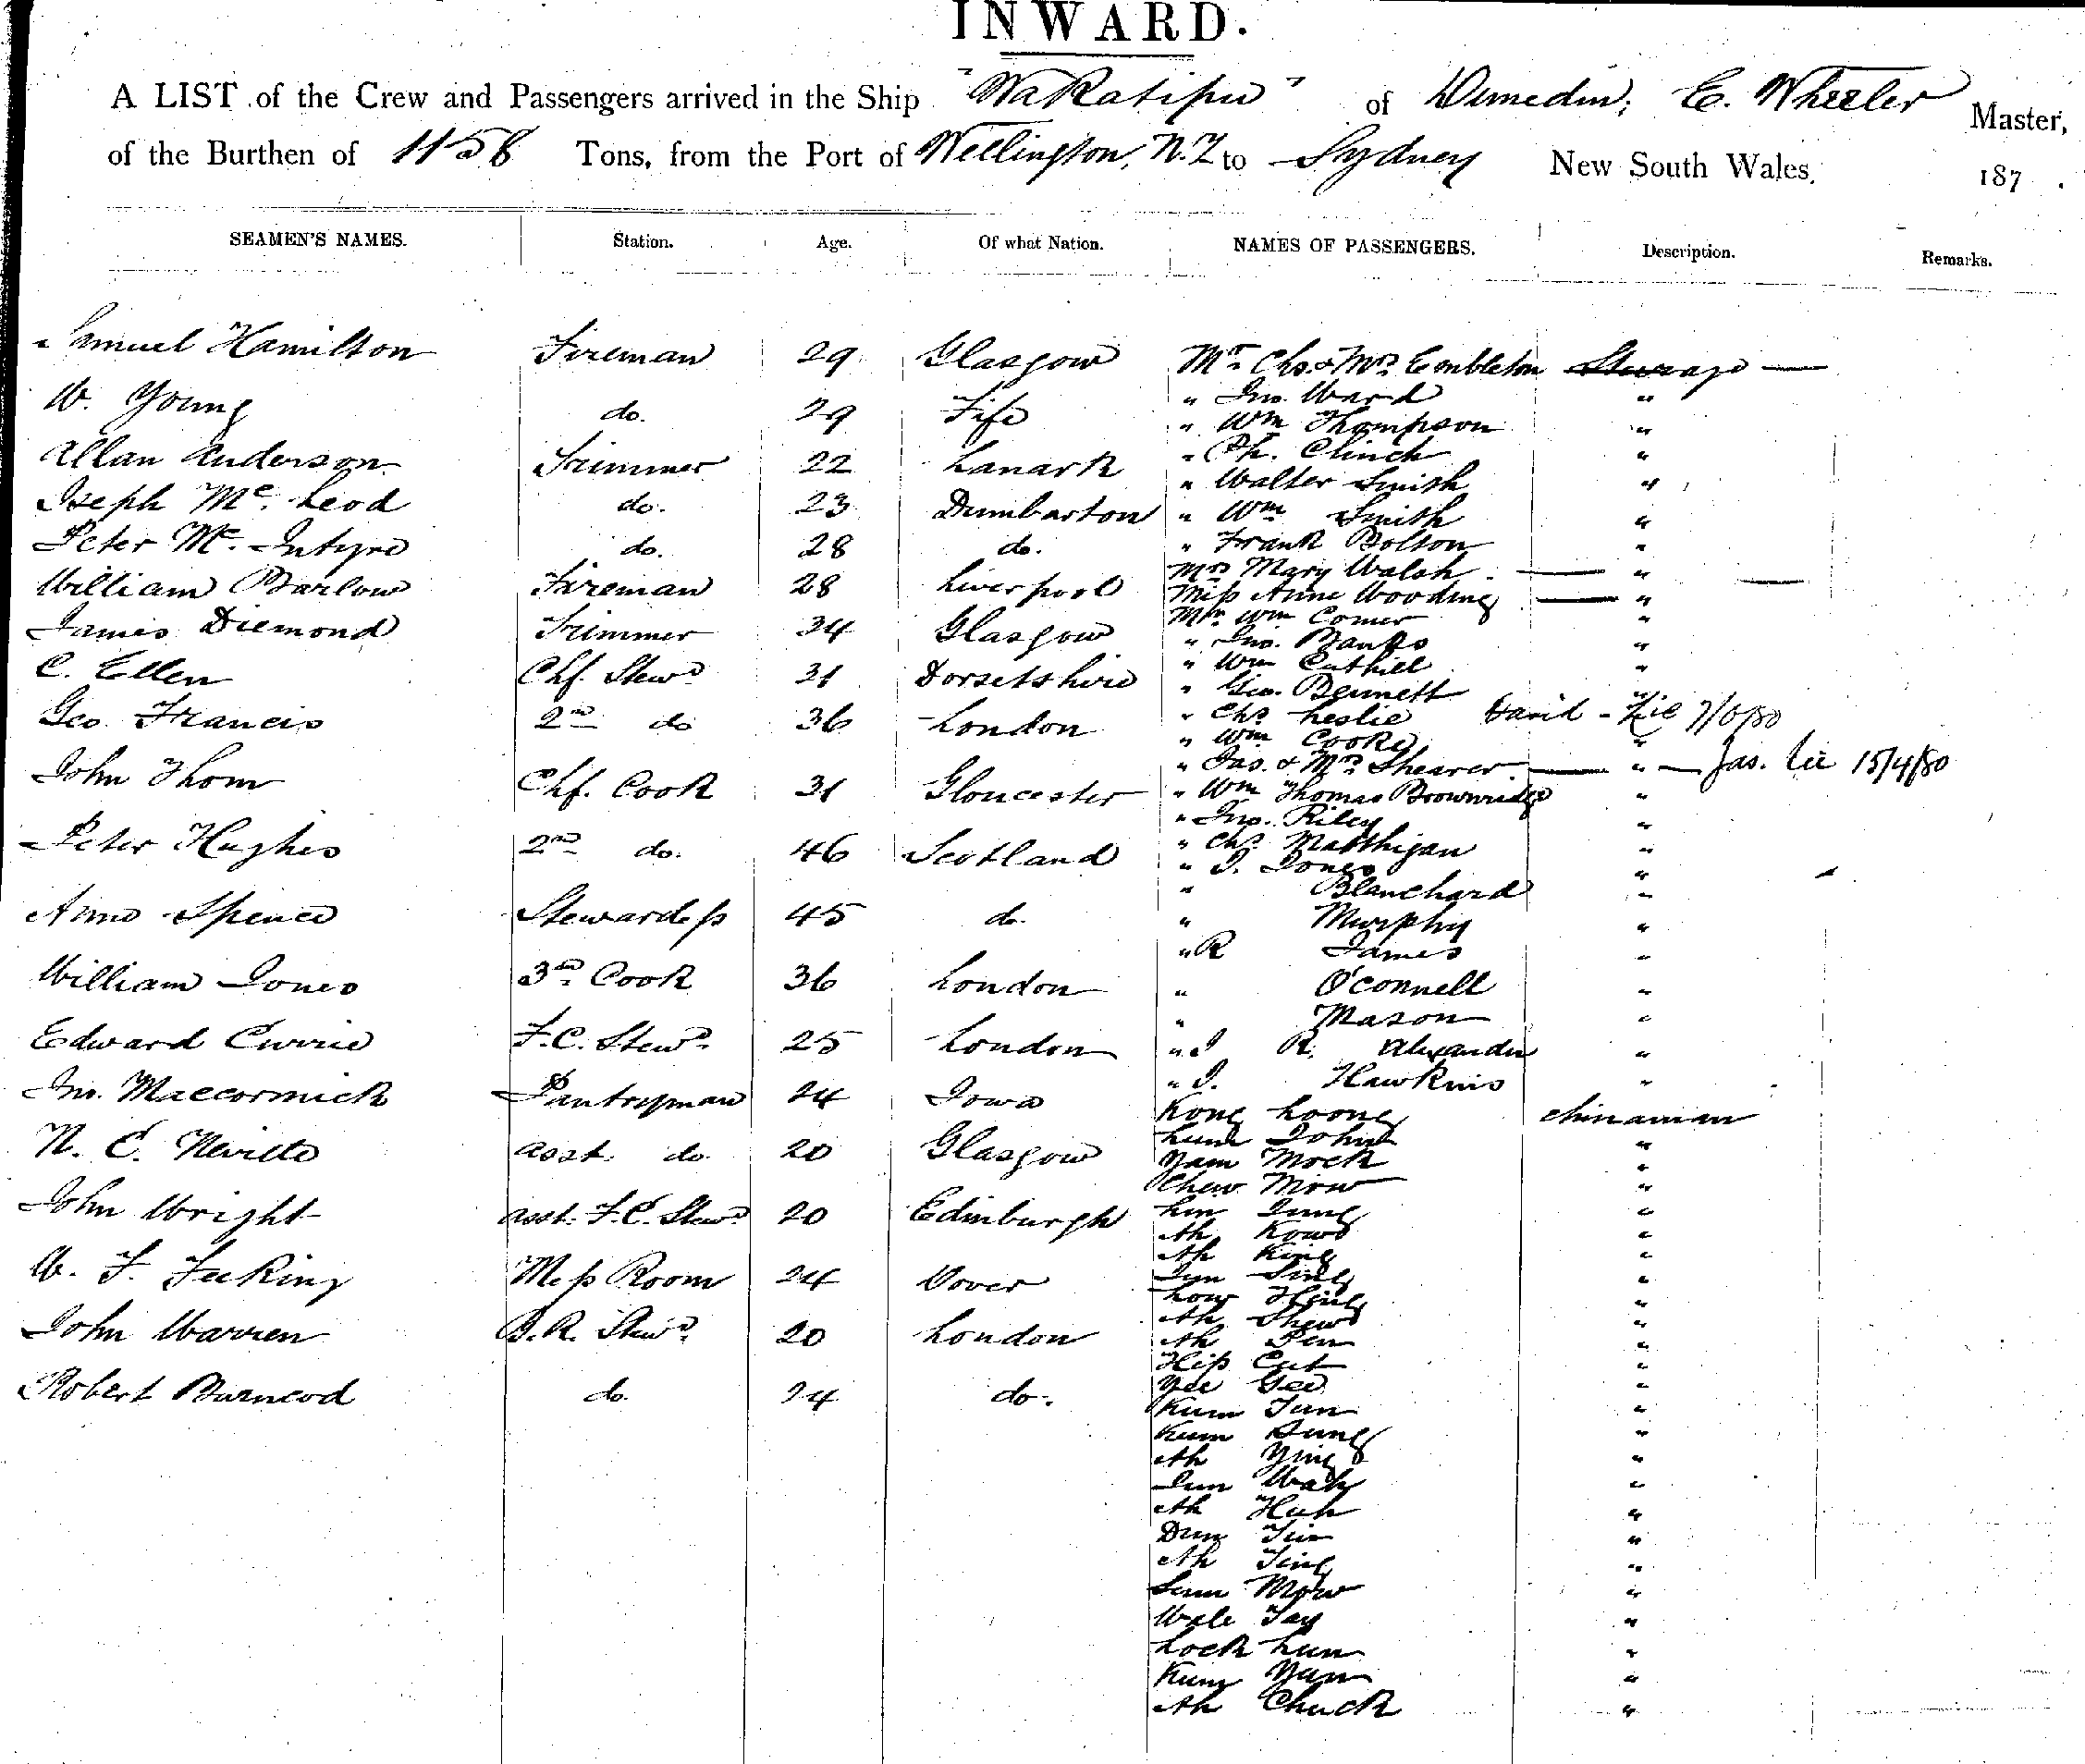 INWARD.
A LIST of the Crew and Passengers arrived in the Ship "Wakatipu" of Dunedin, E. Wheeler Master,
of the Burthen of 1158 Tons, from the Port of Wellington, N.Z to Sydney New South Wales, 187 .
SEAMEN'S NAMES. Station. Age. Of what Nation. NAMES OF PASSENGERS. Description. Remarks.
Samuel Hamilton Fireman 29 Glasgow
W. Young do. 29 Fife
Allan Anderson Trimmer 22 Lanark
Joseph Mc. Leod do. 23 Dumbarton
Peter Mc. Intyre do. 28 do.
William Barlow Fireman 28 Liverpool
James Diemond Trimmer 34 Glasgow
C. Ellen Chf. Stewd 31 Dorsetshire
Geo Francis 2nd do 36 London
John Thom Chf. Cook 31 Gloucester
Peter Hughes 2nd do. 46 Scotland
Anne Spence Stewardess 45 do.
William Jones 3rd Cook 36 London
Edward Currie F.C. Stewd. 25 London
Jno. Maccormick Pantryman 24 Iowa
N. E. Neville asst. do. 20 Glasgow
John Wright asst. F.C. Stewd 20 Edinburgh
W. F. Feeking Mess Room 24 Dover
John Warren B.R. Stewd. 20 London
Robert do. 24 do.
Mr. Chs. & Mrs. Embleton Steerage —
" Jno. Ward "
" Wm Thompson "
" Ch. Clinch "
" Walter Smith "
" Wm Smith "
" Frank Bolton "
Mrs Mary Walsh "
Miss Anne Wooding "
Mr. Wm Comer "
" Jno. Banks "
" Wm Cuthill "
" Geo. Bennett "
" Chs Leslie David
" Wm Cooke "
" Jas. & Mrs Shearer " — Jas. 15/4/80
" Wm Thomas Brownridge "
" Jno. Riley "
" Chs Matthigan "
" J. Jones "
" Blanchard "
" Murphy "
" R James "
" O'Connell "
" Mason "
" J R. Alexander "
" J. Hawkins "
Kong Loong Chinaman
Lum John "
Yam Mock "
Chew Mow "
Lin Jung "
Ah Kowe "
Ah King "
Jyn Sing "
Low Hong "
Ah Shew "
Ah Pen "
Hip Cut "
Yee Gee "
Kum Tun "
Kum Sung "
Ah Ying "
Jum Wah "
Ah Hah "
Dun Tim "
Ah Ting "
Sum Mow "
Wale Tay "
Lock Lum "
Kum Yum "
Ah Chuck "